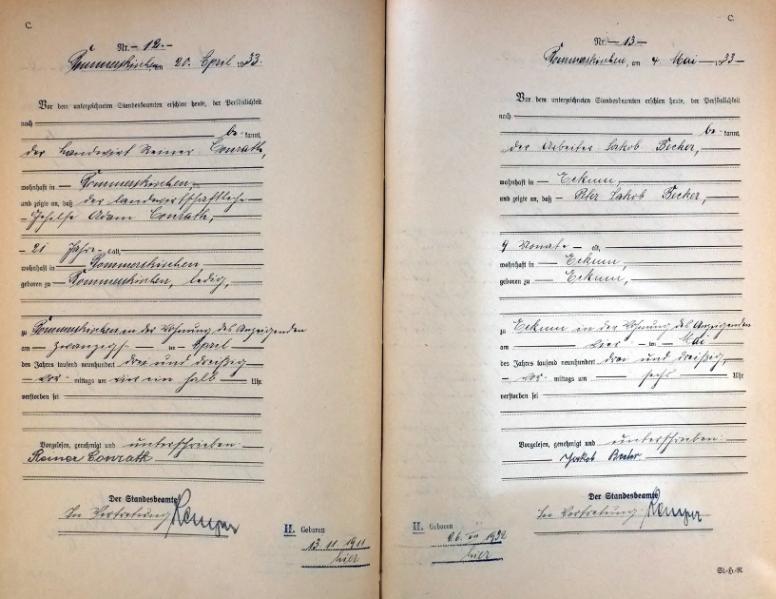 C.
Nr. 12.
Rommerskirchen am 20. April 33.
Vor dem unterzeichneten Standesbeamten erschien heute, der Persönlichkeit
nach
be kannt,
der Landwirt Reiner Conrath,
wohnhaft in Rommerskirchen,
und zeigte an, daß der landwirtschaftliche
Gehilfe Adam Conrath,
21 Jahre alt,
wohnhaft in Rommerskirchen
geboren zu Rommerskirchen, ledig,
zu Rommerskirchen in der Wohnung des Anzeigenden
am zwanzigs ten April
des Jahres tausend neunhundert drei und dreißig
vor mittags um vier ein halb Uhr
verstorben sei
Vorgelesen, genehmigt und unterschrieben.
Reiner Conrath
Der Standesbeamte
In Vertretung Kemper
II. Geboren
13 11 1911
hier
C.
Nr. 13
Rommerskirchen, am 4. Mai 33
Vor dem unterzeichneten Standesbeamten erschien heute, der Persönlichkeit
nach
be kannt,
der Arbeiter Jakob Becker,
wohnhaft in Eckum,
und zeigte an, daß Peter Jakob Becker,
9 Monate alt,
wohnhaft in Eckum,
geboren zu Eckum,
zu Eckum in der Wohnung des Anzeigenden
am vier ten Mai
des Jahres tausend neunhundert drei und dreißig,
vor mittags um sechs Uhr
verstorben sei
Vorgelesen, genehmigt und unterschrieben.
Jakob Becker
Der Standesbeamte
In Vertretung Kemper
II. Geboren
1932
hier
St.-H.-R.